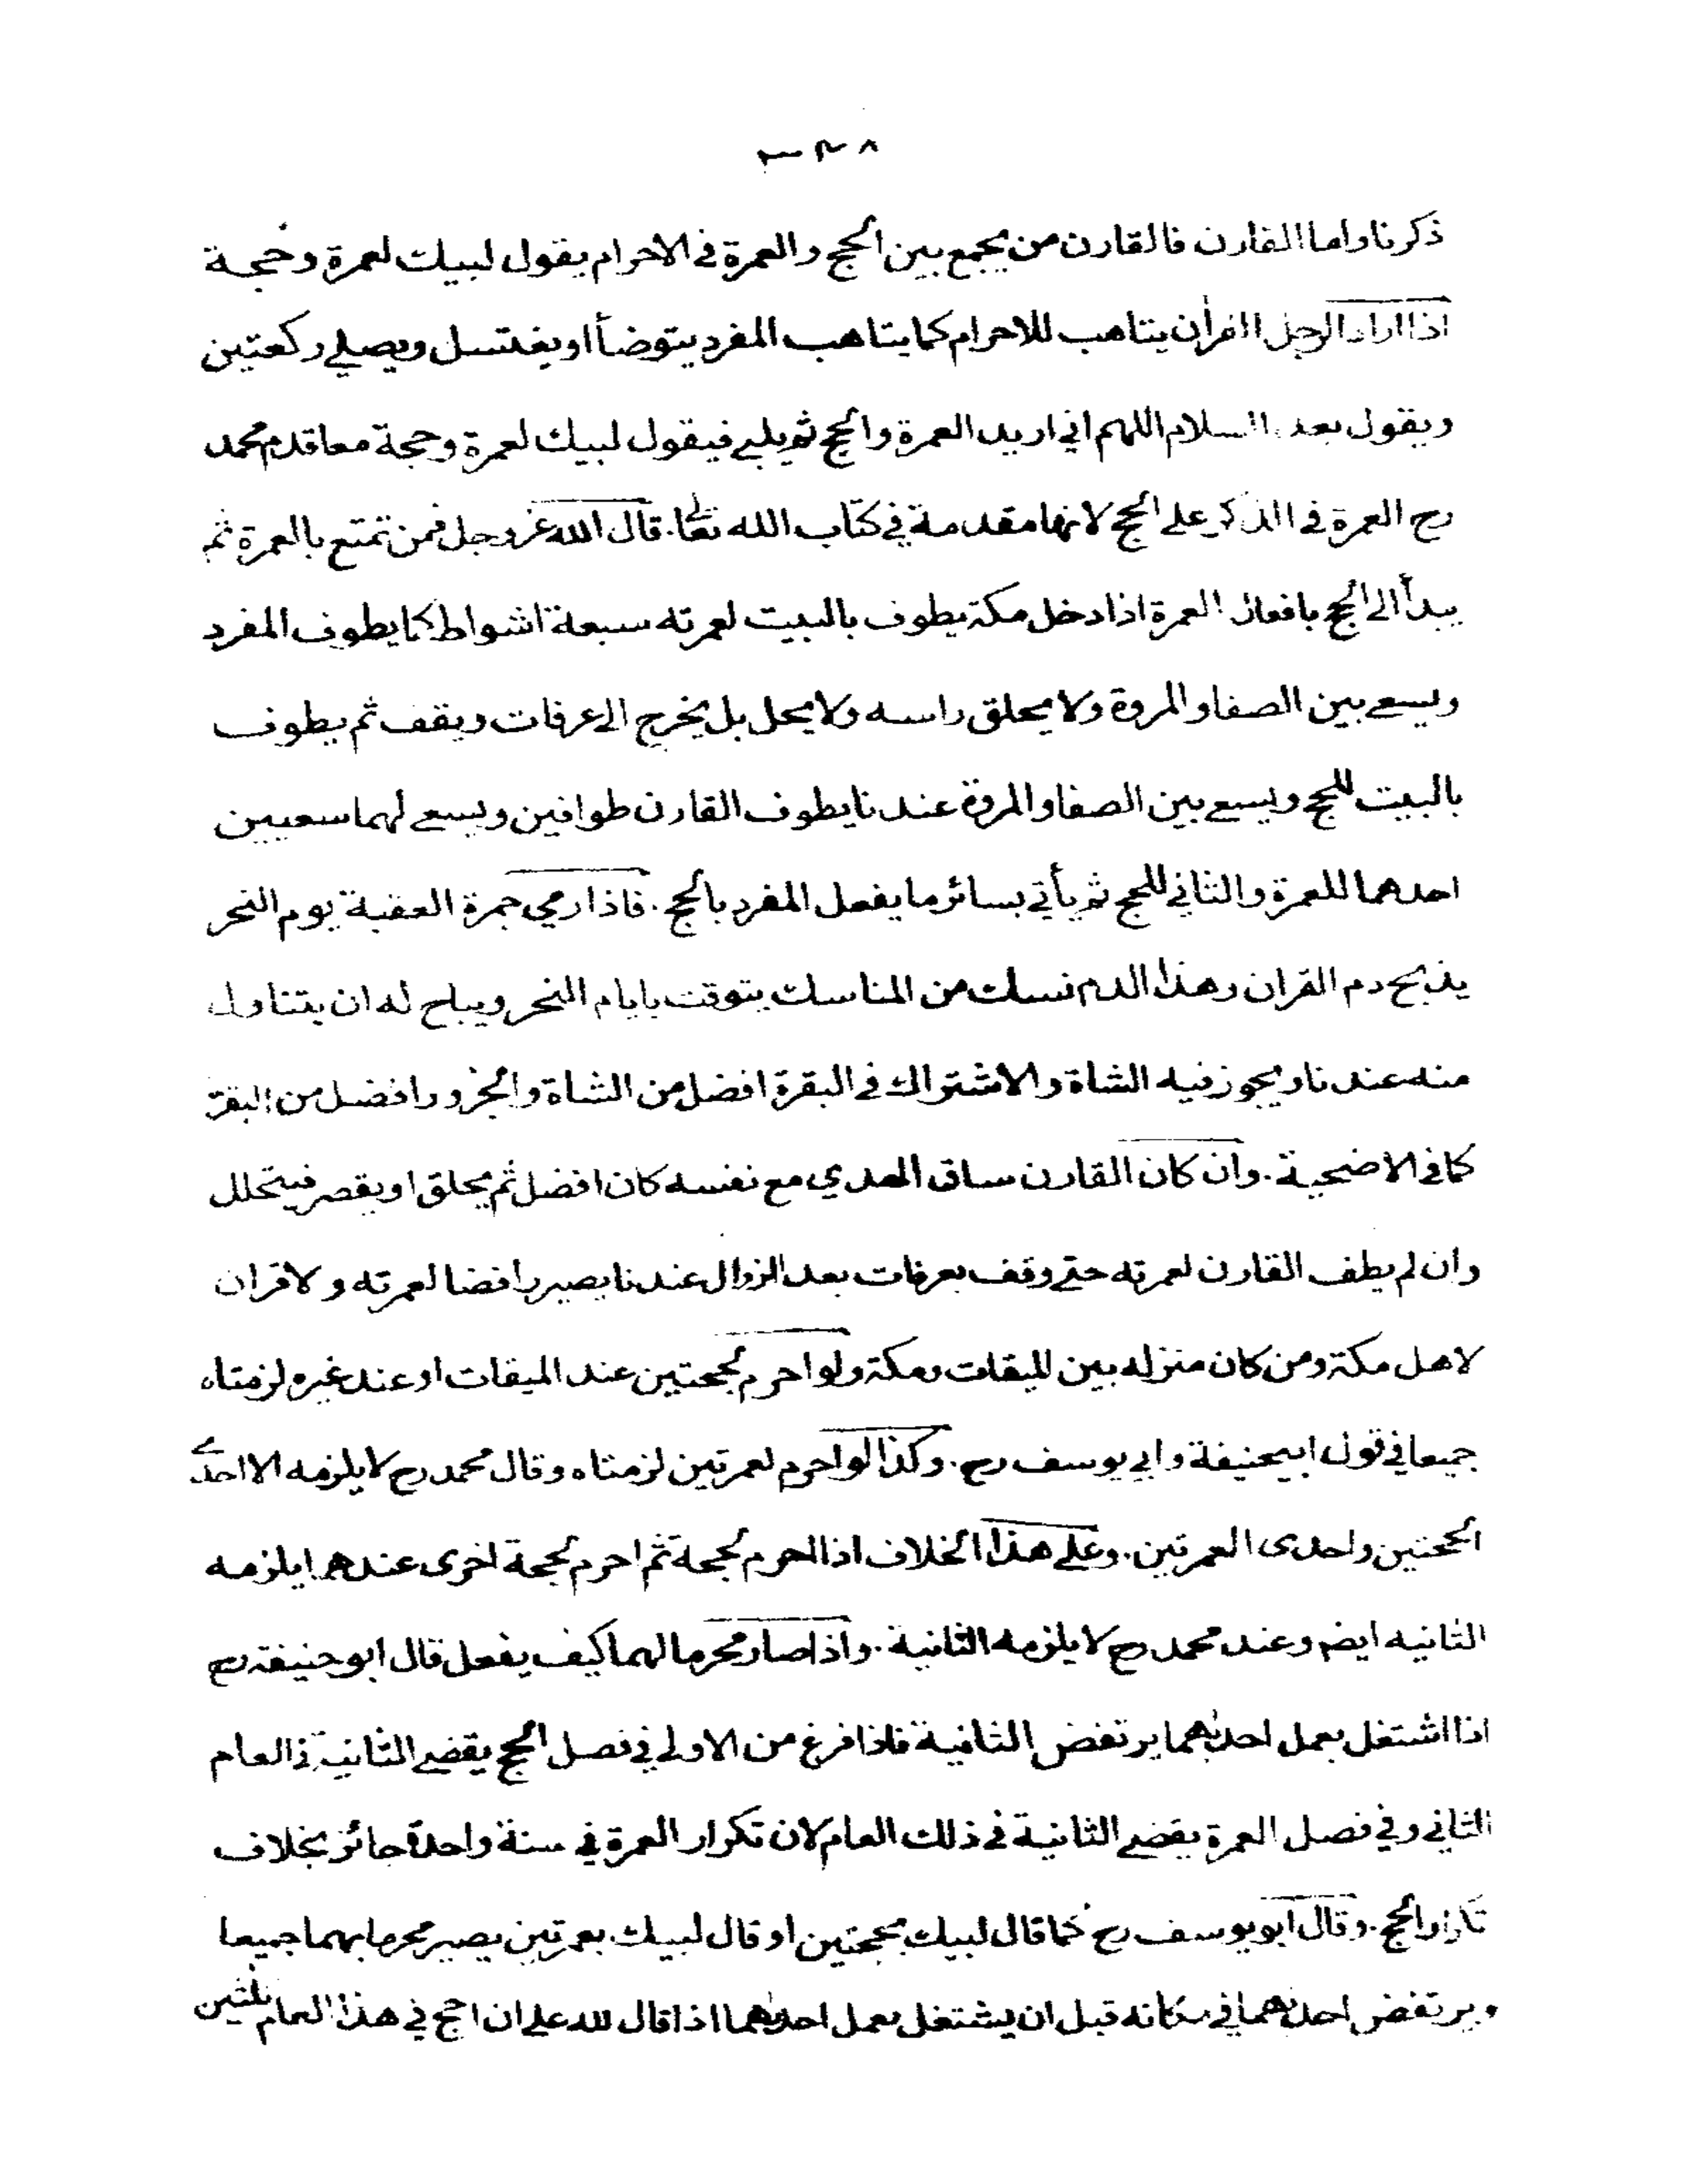 ٣٤٨
ذكرنا واما القارن فالقارن من يجمع بين الحج والعمرة في الاحرام يقول لبيك لعمرة وحجة
اذا اراد الرجل القران يتاهب للاحرام كما يتاهب المفرد يتوضأ او يغتسل ويصلي ركعتين
ويقول بعد السلام اللهم اني اريد العمرة والحج ثم يلبي فيقول لبيك لعمرة وحجة معا قدم محمد
رح العمرة في الذكر على الحج لانها مقدمة في كتاب الله تعا. قال الله عز وجل فمن تمتع بالعمرة ثم
يبدأ الى الحج بافعال العمرة اذا دخل مكة يطوف بالبيت لعمرته سبعة اشواط كما يطوف المفرد
ويسعى بين الصفا والمروة ولا يحلق راسه ولا يحل بل يخرج الى عرفات ويقف ثم يطوف
بالبيت للحج ويسعى بين الصفا والمروة عندنا يطوف القارن طوافين ويسعى لهما سعيين
احدهما للعمرة والثاني للحج ثم يأتي بسائر ما يفعل المفرد بالحج. فاذا رمي جمرة العقبة يوم النحر
يذبح دم القران وهذا الدم نسك من المناسك يتوقت بايام النحر ويباح له ان يتناول
منه عندنا ويجوز فيه الشاة والاشتراك في البقرة افضل من الشاة والجزور افضل من البقرة
كما في الاضحية. وان كان القارن ساق الهدي مع نفسه كان افضل ثم يحلق او يقصر فيتحلل
وان لم يطف القارن لعمرته حتى وقف بعرفات بعد الزوال عندنا يصير رافضا لعمرته ولا قران
لاهل مكة ومن كان منزله بين الميقات ومكة ولو احرم لحجتين عند الميقات او عند غيره لزمتاه
جميعا في قول ابيحنيفة وابي يوسف رح. وكذا لو احرم لعمرتين لزمتاه وقال محمد رح لا يلزمه الا احدى
الحجتين واحدى العمرتين. وعلى هذا الخلاف اذا احرم لحجة ثم احرم لحجة اخرى عندهما يلزمه
الثانيه ايضم وعند محمد رح لا يلزمه الثانية. واذا صار محرما لهما كيف يفعل قال ابو حنيفة رح
اذا اشتغل بعمل احدىهما يرتفض الثانية فاذا فرغ من الاولى في فصل الحج يقضي الثانية في العام
الثاني وفي فصل العمرة يقضي الثانية في ذلك العام لان تكرار العمرة في سنة واحدة جائز بخلاف
تكرار الحج. وقال ابو يوسف رح كما قال لبيك بحجتين او قال لبيك بعمرتين يصير محرما بهما جميعا
ويرتفض احدىهما في مكانه قبل ان يشتغل بعمل احدىهما اذا قال لله علي ان احج في هذا العام ثلثين